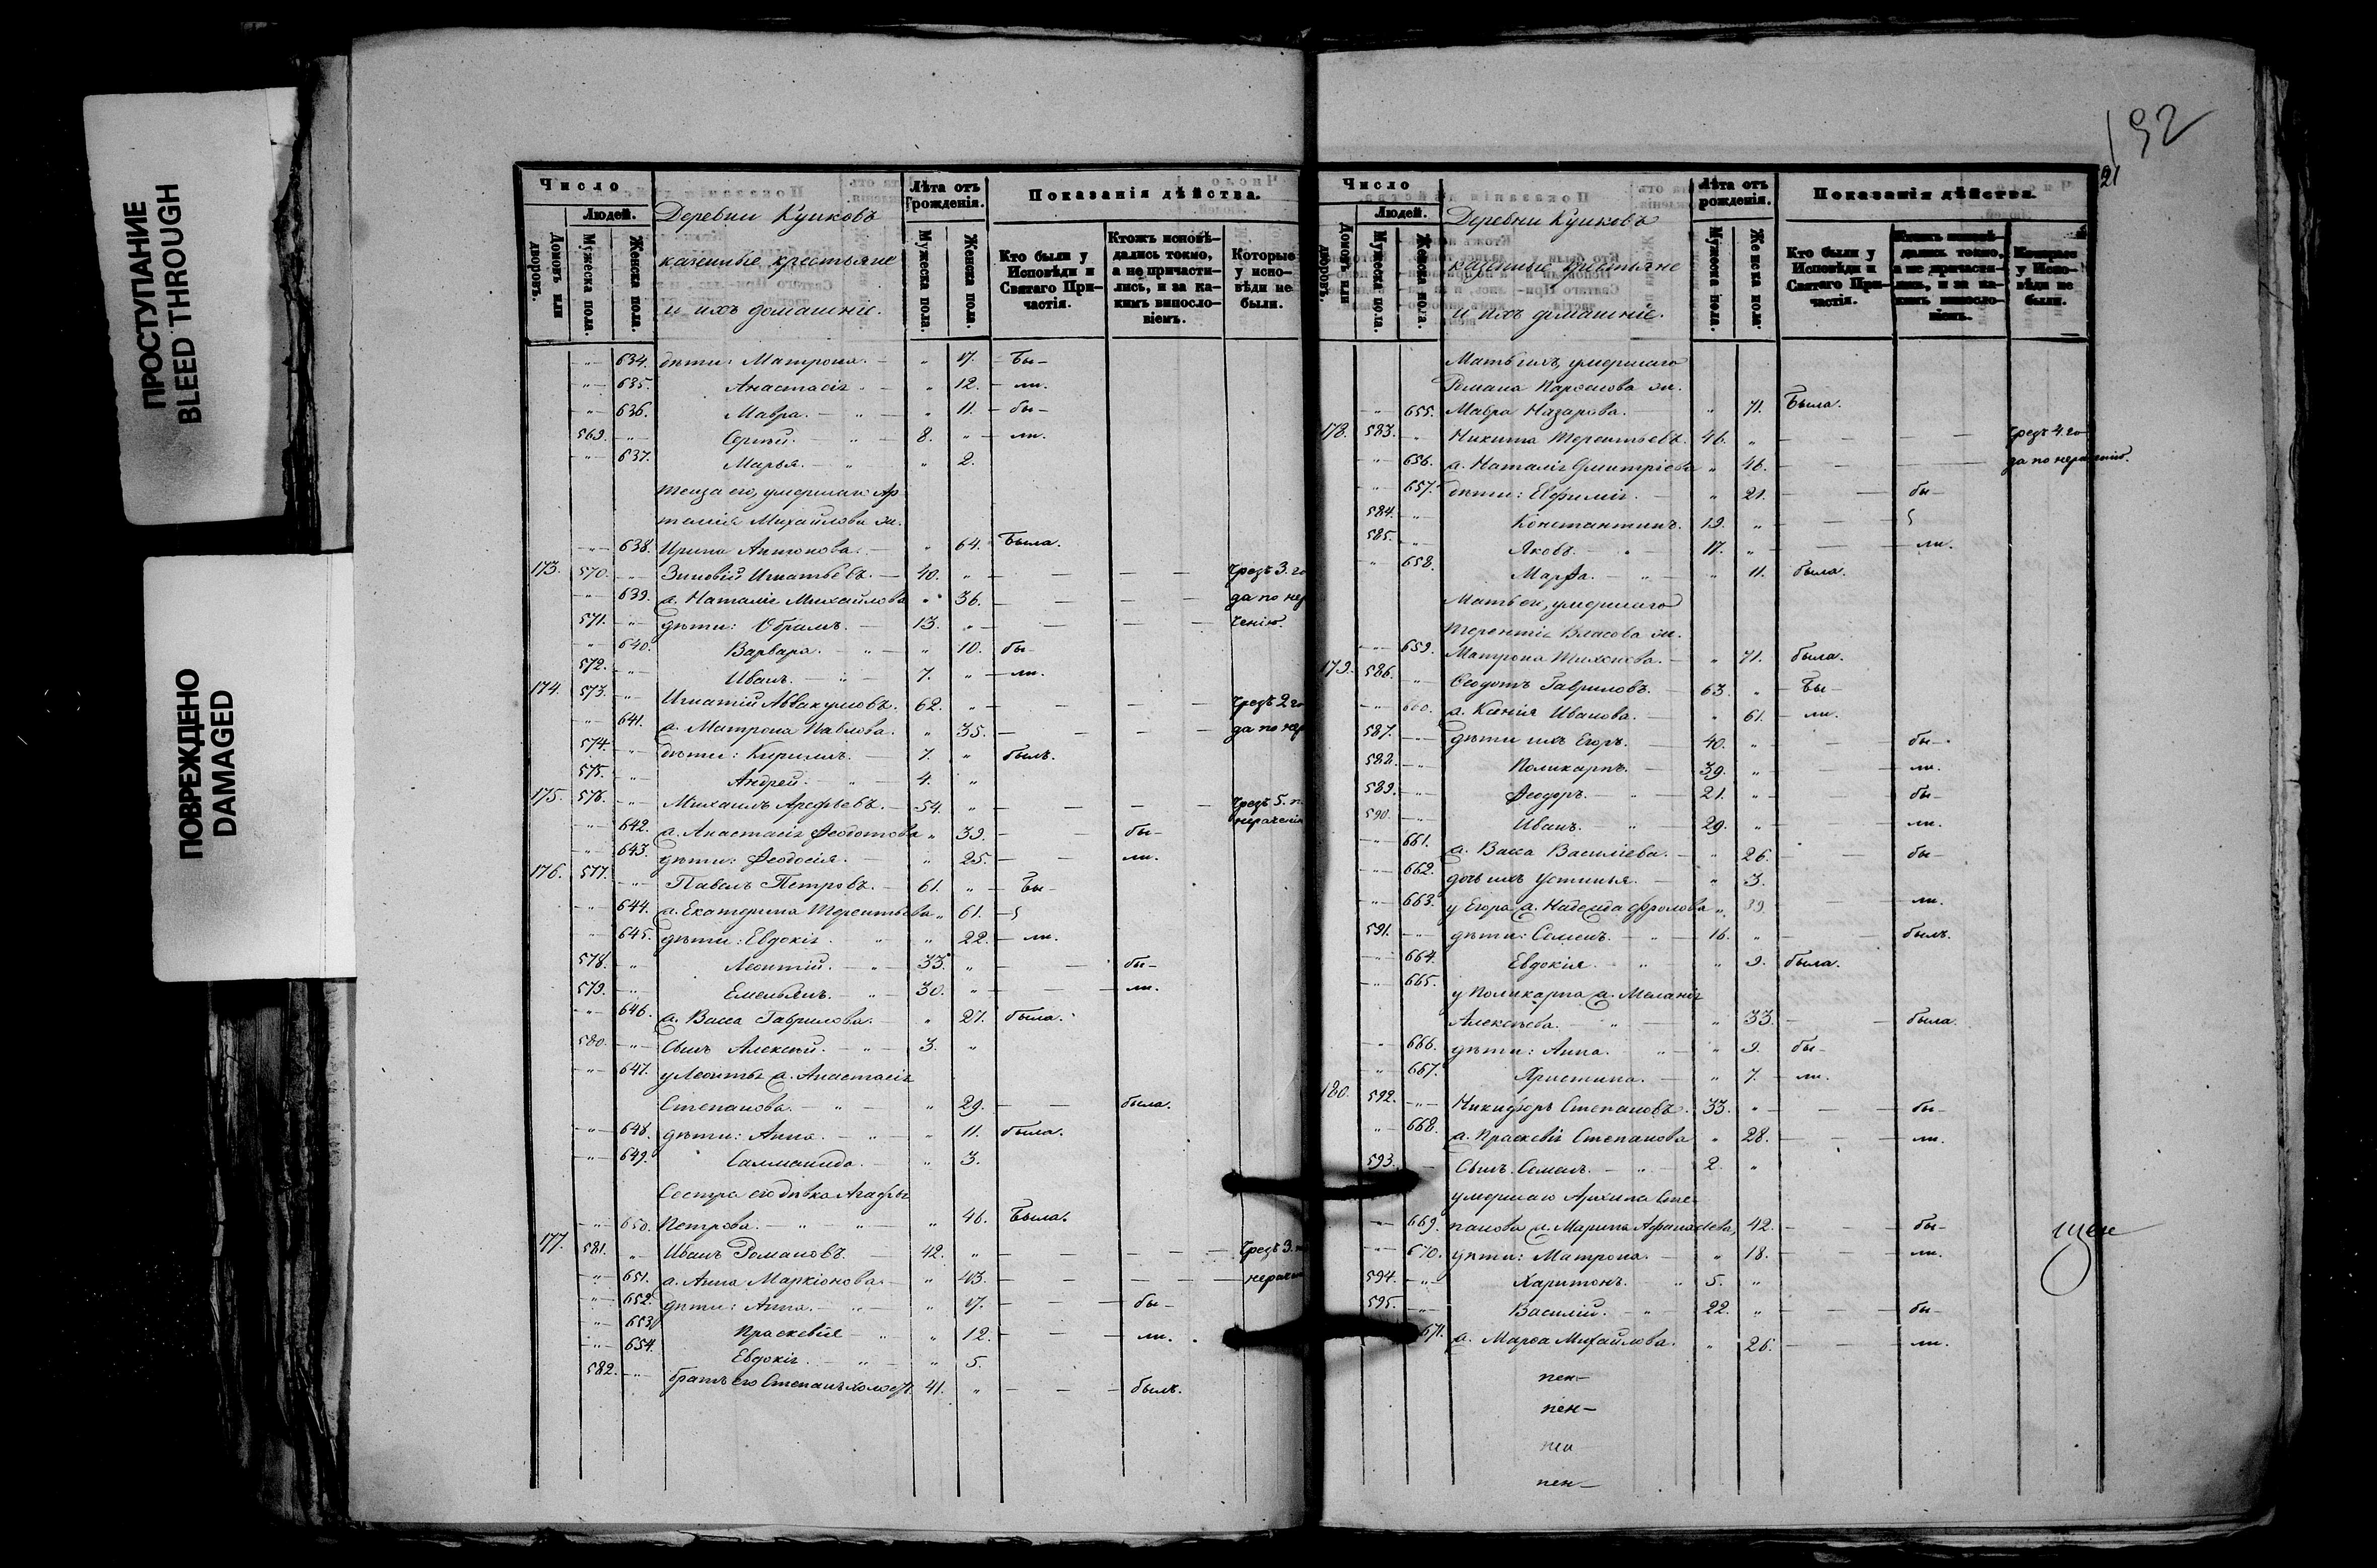 ПРОСТУПАНИЕ
BLEED THROUGH
ПОВРЕЖДЕНО
DAMAGED
Число
Людей.
Домовъ или дворовъ.
Мужеска пола.
Женска пола.
Деревни Кучковъ
казенные крестьяне
и ихъ домашніе.
Лѣта отъ рожденія.
Мужеска пола.
Женска пола.
Показанія дѣйства.
Кто были у Исповѣди и Святаго Причастія.
Ктожъ исповѣдались токмо, а не причастились, и за какимъ винословіемъ.
Которые у исповѣди не были.
„ 634. дѣти: Матрона. „ 17. Бы-
„ 635. Анастасія „ 12. ли.
„ 636. Мавра. „ 11. бы-
569. „ Сергѣй. 8. „ ли.
„ 637. Марья. „ 2.
теща его, умершаго Ар
темія Михайлова ж.
„ 638. Ирина Антонова. „ 64. Была.
173. 570. „ Зиновій Игнатьевъ. 40. „ Чрезъ 3. го
„ 639. а. Наталія Михайлова „ 36. да по нер
571. „ дѣти: Абрамъ. 13. „ ченію.
„ 640. Варвара. „ 10. бы-
572. „ Иванъ. 7. „ ли.
174. 573. „ Игнатій Аввакумовъ. 62. „ Чрезъ 2 го
„ 641. а. Матрона Павлова. „ 35. да по нер
574. „ дѣти: Кирилъ. 7. „ былъ.
575. „ Андрей. 4. „
175. 576. „ Михаилъ Арефьевъ. 54. „ Чрезъ 5. п.
„ 642. а. Анастасія Феодотова „ 39. бы- нераченію
„ 643. дѣти: Феодосія. „ 25. ли.
176. 577. „ Павелъ Петровъ. 61. „ Бы-
„ 644. а. Екатерина Терентьева „ 61.
„ 645. дѣти: Евдокія. „ 22. ли.
578. „ Леонтій. 33. „ бы-
579. „ Емельянъ. 30. „ ли.
„ 646. а. Васса Гаврилова. „ 27. была.
580. „ Сынъ Алексѣй. 3. „
„ 647. у Леонтья а. Анастасія
Степанова. „ 29. была.
„ 648. дѣти: Анна. „ 11. была.
„ 649. „ 3.
Сестра его дѣвка Агафья
„ 650. Петрова. „ 46. Была.
177. 581. „ Иванъ Романовъ. 42. „ Чрезъ 3.
„ 651. а. Анна Маркіонова. „ 43. нераче
„ 652. дѣти: Анна. „ 17. бы-
„ 653. Праскевія „ 12. ли.
„ 654. Евдокія. „ 5.
582. „ братъ его Степанъ холостъ 41. „ былъ.
192
21
Число
Людей.
Домовъ или дворовъ.
Мужеска пола.
Женска пола.
Деревни Кучковъ
казенные крестьяне
и ихъ домашніе.
Лѣта отъ рожденія.
Мужеска пола.
Женска пола.
Показанія дѣйства.
Кто были у Исповѣди и Святаго Причастія.
Ктожъ исповѣдались токмо, а не причастились, и за какимъ винословіемъ.
Которые у Исповѣди не были.
Мать ихъ, умершаго
Романа Парфенова ж.
„ 655. Мавра Назарова. „ 71. Была.
178. 583. „ Никита Терентьевъ. 46. „ Чрезъ 4. го
„ 656. а. Наталія Дмитріева „ 46. да по нераченію.
„ 657. дѣти: Евфимія. „ 21. бы-
584. „ Константинъ. 19. „
585. „ Яковъ. 17. „ ли.
„ 658. Марфа. „ 11. была.
Мать его, умершаго
Терентія Власова ж.
„ 659. Матрона Тихонова. „ 71. была.
179. 586. „ Феодотъ Гавриловъ. 63. „ Бы-
„ 660. а. Ксенія Иванова. „ 61. ли.
587. „ дѣти ихъ Егоръ. 40. „ бы-
582. „ Поликарпъ. 39. „ ли.
589. „ Феодоръ. 21. „ бы-
590. „ Иванъ. 29. „ ли.
„ 661. а. Васса Василіева. „ 26. бы-
„ 662. дочь ихъ Устинья. „ 3.
„ 663. у Егора а. Надежда Фролова „ 39. ли.
591. „ дѣти: Семенъ. 16. „ былъ.
„ 664. Евдокія. „ 9. была.
„ 665. у Поликарпа а. Меланія
Алексѣева. „ 33. была.
„ 666. дѣти: Анна. „ 9. бы-
„ 667. Христина. „ 7. ли.
180. 592. „ Никифоръ Степановъ. 33. „ бы-
„ 668. а. Праскевія Степанова „ 28. ли.
593. Сынъ Семенъ. 2. „
умершаго Архипа Сте-
„ 669. панова ж. Марина Афанасіева, 42. бы-
„ 670. дѣти: Матрона. „ 18. ли.
594. „ Харитонъ. 5. „
595. „ Василій. 22. „ бы-
671. а. Марѳа Михайлова. „ 26. ли.